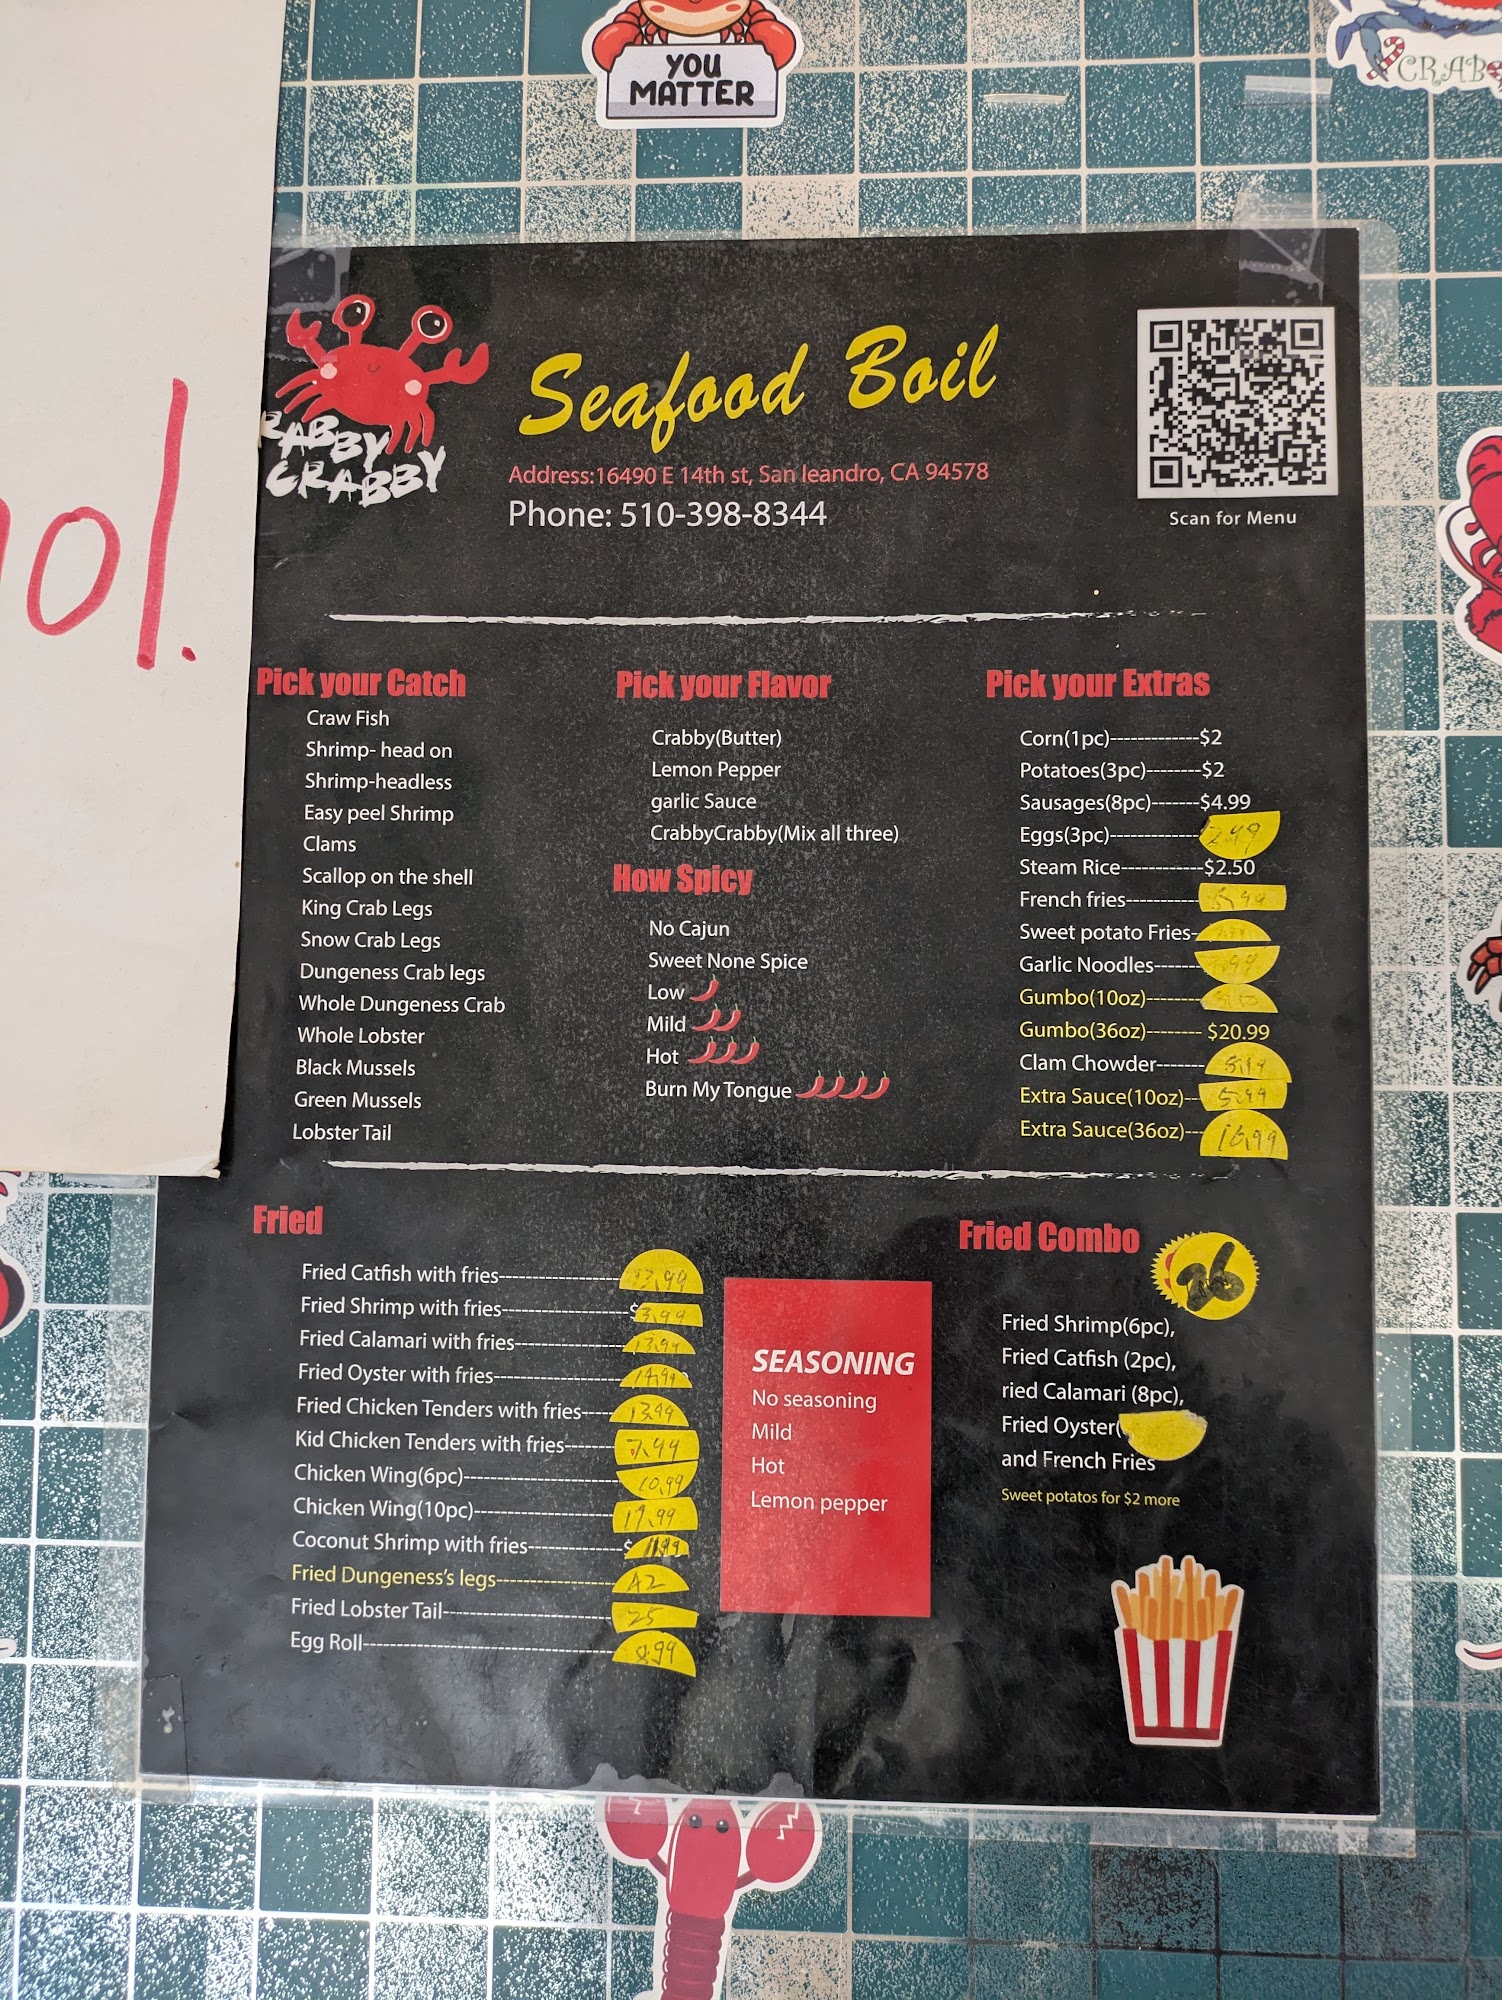 YOU
MATTER
CRAB
ol.
RABBY
CRABBY
Seafood Boil
Address:16490 E 14th st, San leandro, CA 94578
Phone: 510-398-8344
Scan for Menu
Pick your Catch
Craw Fish
Shrimp- head on
Shrimp-headless
Easy peel Shrimp
Clams
Scallop on the shell
King Crab Legs
Snow Crab Legs
Dungeness Crab legs
Whole Dungeness Crab
Whole Lobster
Black Mussels
Green Mussels
Lobster Tail
Pick your Flavor
Crabby(Butter)
Lemon Pepper
garlic Sauce
CrabbyCrabby(Mix all three)
How Spicy
No Cajun
Sweet None Spice
Low
Mild
Hot
Burn My Tongue
Pick your Extras
Corn(1pc)-------------$2
Potatoes(3pc)--------$2
Sausages(8pc)-------$4.99
Eggs(3pc)-------------2.49
Steam Rice------------$2.50
French fries-----------5.99
Sweet potato Fries-
Garlic Noodles-------
Gumbo(10oz)--------
Gumbo(36oz)-------- $20.99
Clam Chowder-------
Extra Sauce(10oz)--5.99
Extra Sauce(36oz)---16.99
Fried
Fried Catfish with fries------------------13.99
Fried Shrimp with fries-------------------$3.99
Fried Calamari with fries----------------13.99
Fried Oyster with fries-------------------14.99
Fried Chicken Tenders with fries-----13.99
Kid Chicken Tenders with fries-------7.99
Chicken Wing(6pc)-----------------------10.99
Chicken Wing(10pc)---------------------17.99
Coconut Shrimp with fries--------------$11.99
Fried Dungeness's legs------------------42
Fried Lobster Tail-------------------------25
Egg Roll--------------------------------------8.99
SEASONING
No seasoning
Mild
Hot
Lemon pepper
Fried Combo
26
Fried Shrimp(6pc),
Fried Catfish (2pc),
ried Calamari (8pc),
Fried Oyster(
and French Fries
Sweet potatos for $2 more